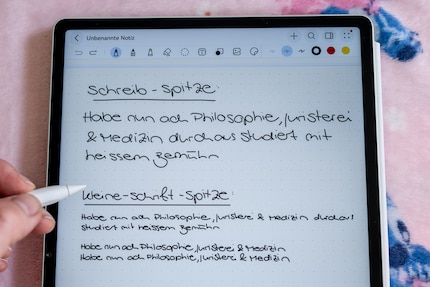 Unbenannte Notiz
Schreib-Spitze:
Habe nun ach Philosophie, Juristerei
& Medizin durchaus studiert mit
heissem Bemühn
kleine-Schrift-Spitze:
Habe nun ach Philosophie, Juristerei & Medizin durchaus
studiert mit heissem Bemühn
Habe nun ach Philosophie, Juristerei & Medizin
Habe nun ach Philosophie, Juristerei & Medizin